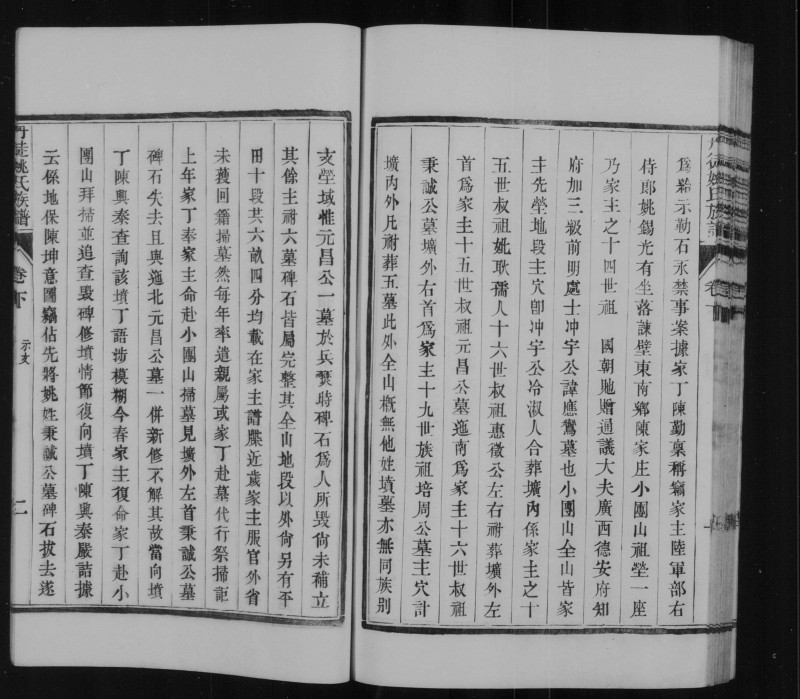 爲給示勒石永禁事案據家丁陳勤稟稱竊家主陸軍部右
侍郎姚錫光有坐落諫壁東南鄉陳家庄小團山祖塋一座
乃家主之十四世祖　國朝貤贈通議大夫廣西德安府知
府加三級前明處士冲宇公諱應鸞墓也小團山全山皆家
主先塋地段主穴卽冲宇公冷淑人合葬壙內係家主之十
五世叔祖妣耿孺人十六世叔祖惠徵公左右祔葬壙外左
首爲家主十五世叔祖元昌公墓迤南爲家主十六世叔祖
秉誠公墓壙外右首爲家主十九世族祖培周公墓主穴計
壙內外凡祔葬五墓此外全山槪無他姓墳墓亦無同族別
支塋域惟元昌公一墓於兵燹時碑石爲人所毀尙未補立
其餘主祔六墓碑石皆屬完整其全山地段以外尙另有平
田十段共六畝四分均載在家主譜牒近歲家主服官外省
未獲回籍掃墓然每年率遣親屬或家丁赴墓代行祭掃詎
上年家丁奉家主命赴小團山掃墓見壙外左首秉誠公墓
碑石失去且與迤北元昌公墓一併新修不解其故當向墳
丁陳興泰查詢該墳丁語涉模糊今春家主復命家丁赴小
團山拜掃並追查毀碑修墳情節復向墳丁陳興泰嚴詰據
云係地保陳坤意圖竊佔先將姚姓秉誠公墓碑石拔去遂
姚氏族譜　卷下　示文　二